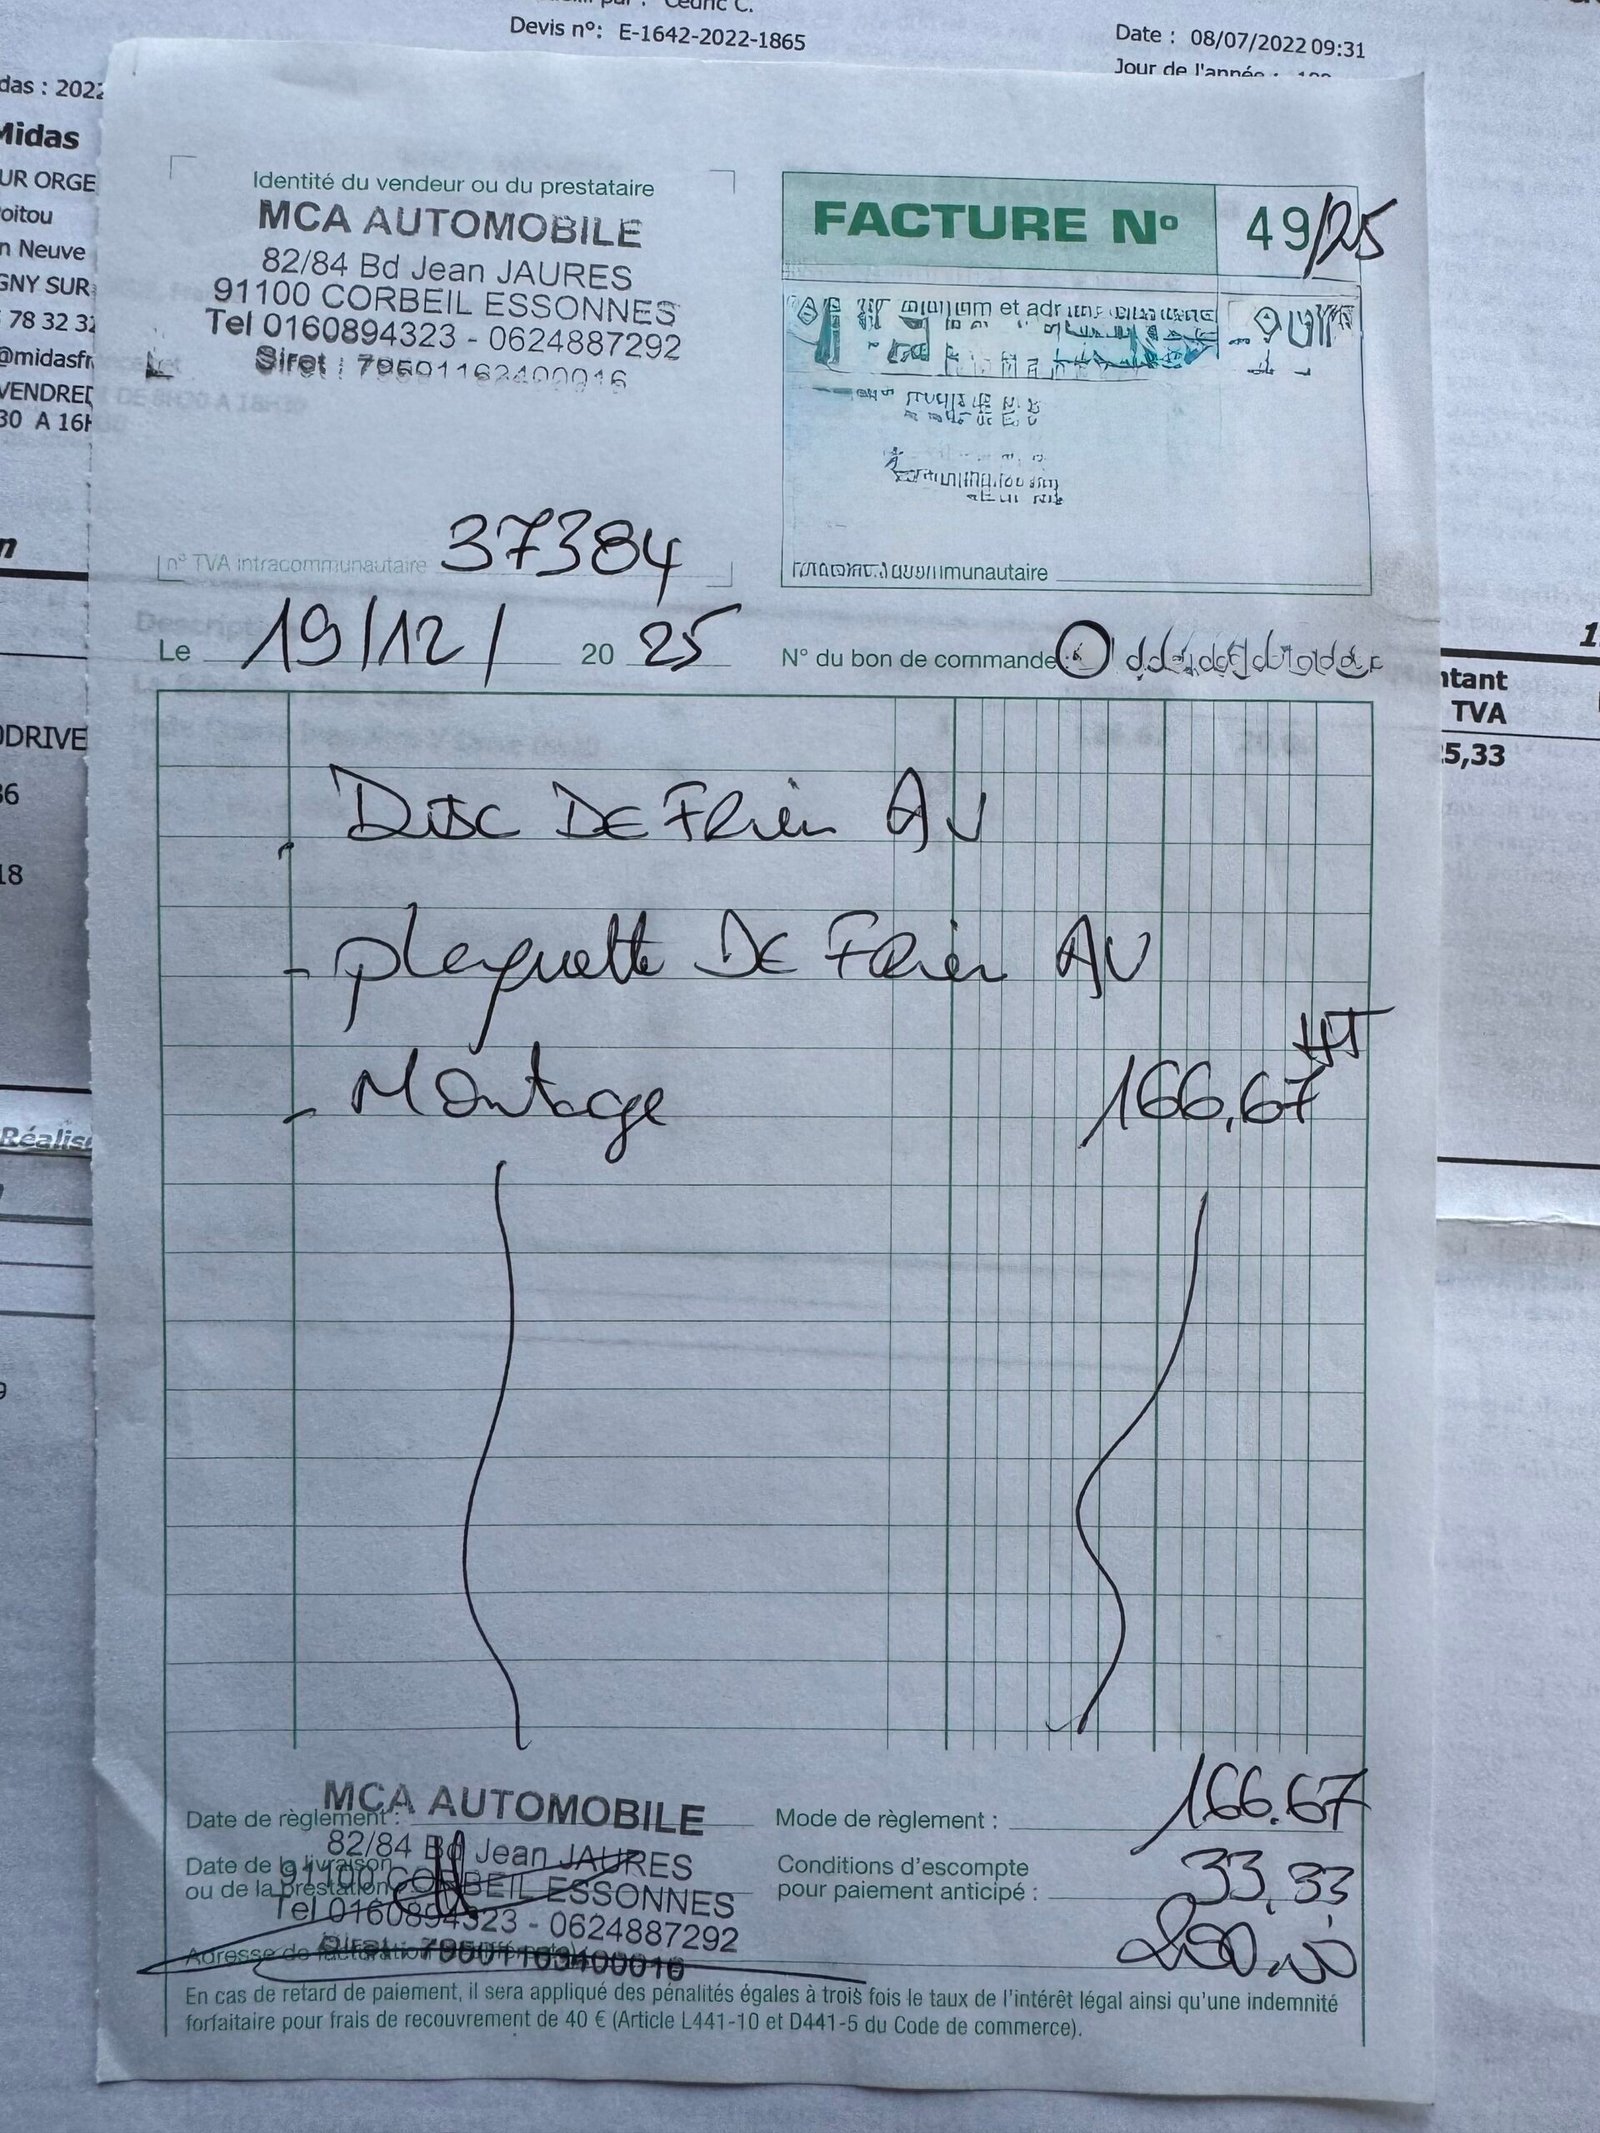 Cédric C.
Devis n°: E-1642-2022-1865
Date : 08/07/2022 09:31
Jour de l'année :
das : 2022
Midas
UR ORGE
oitou
n Neuve
GNY SUR
78 32 32
@midasfr
VENDRED
30 A 16H
Identité du vendeur ou du prestataire
MCA AUTOMOBILE
82/84 Bd Jean JAURES
91100 CORBEIL ESSONNES
Tel 0160894323 - 0624887292
Siret :
FACTURE N° 49/25
et adr
n° TVA intracommunautaire 37384
munautaire
Le 19/12/ 20 25
N° du bon de commande
ntant
TVA
25,33
ODRIVE
36
18
Réalis
Disc De Frein AV
- plaquette De Frein AV
- Montage 166,67 HT
MCA AUTOMOBILE
82/84 Bd Jean JAURES
91100 CORBEIL ESSONNES
Tel 0160894323 - 0624887292
Siret
Date de règlement :
Date de la livraison
ou de la prestation
Adresse de facturation
Mode de règlement : 166.67
Conditions d'escompte
pour paiement anticipé : 33,33
200,00
En cas de retard de paiement, il sera appliqué des pénalités égales à trois fois le taux de l'intérêt légal ainsi qu'une indemnité
forfaitaire pour frais de recouvrement de 40 € (Article L441-10 et D441-5 du Code de commerce).